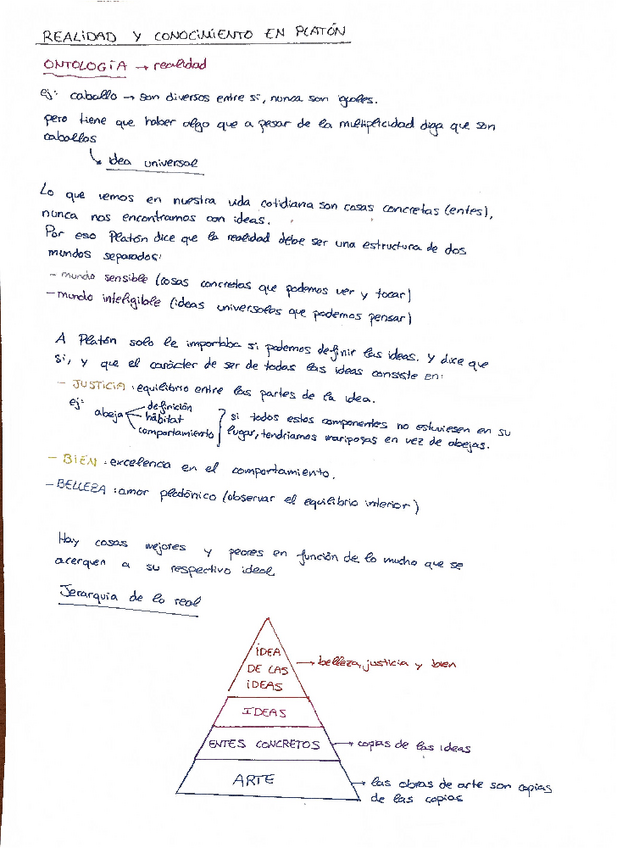 REALIDAD Y CONOCIMIENTO EN PLATÓN
ONTOLOGÍA → realidad
ej: caballo → son diversos entre sí, nunca son iguales.
pero tiene que haber algo que a pesar de la multiplicidad diga que son
caballos
↳ idea universal
Lo que vemos en nuestra vida cotidiana son cosas concretas (entes),
nunca nos encontramos con ideas.
Por eso Platón dice que la realidad debe ser una estructura de dos
mundos separados:
- mundo sensible (cosas concretas que podemos ver y tocar)
- mundo inteligible (ideas universales que podemos pensar)
A Platón solo le importaba si podemos definir las ideas. Y dice que
sí, y que el carácter de ser de todas las ideas consiste en:
- JUSTICIA: equilibrio entre las partes de la idea.
ej: abeja
definición
hábitat
comportamiento
si todos estos componentes no estuviesen en su
lugar, tendríamos mariposas en vez de abejas.
- BIEN: excelencia en el comportamiento.
- BELLEZA: amor platónico (observar el equilibrio interior)
Hay cosas mejores y peores en función de lo mucho que se
acerquen a su respectivo ideal
Jerarquía de lo real
IDEA
DE LAS
IDEAS
→ belleza, justicia y bien
IDEAS
ENTES CONCRETOS → copias de las ideas
ARTE → las obras de arte son copias
de las copias